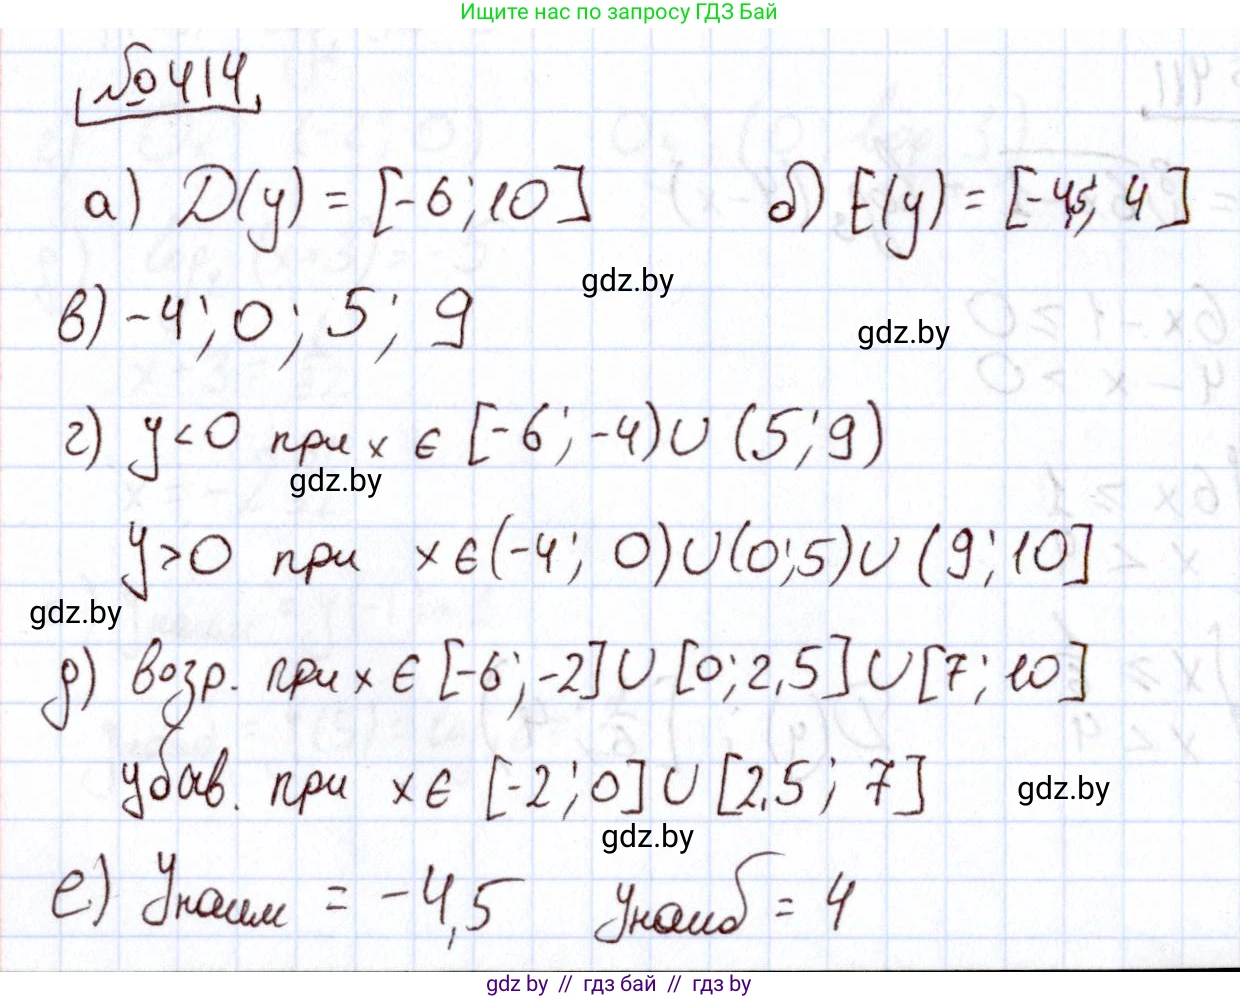 Ищите нас по запросу ГДЗ Бай
№414
а) D(y) = [-6; 10]   б) E(y) = [-4,5; 4]
gdz.by
в) -4; 0; 5; 9
gdz.by
г) y<0 при x ∈ [-6; -4) ∪ (5; 9)
gdz.by
y>0 при x ∈ (-4; 0) ∪ (0; 5) ∪ (9; 10]
gdz.by
д) возр. при x ∈ [-6; -2] ∪ [0; 2,5] ∪ [7; 10]
убыв. при x ∈ [-2; 0] ∪ [2,5; 7]
gdz.by
gdz.by
е) Yнаим = -4,5   Yнаиб = 4
gdz.by // гдз бай // гдз.by